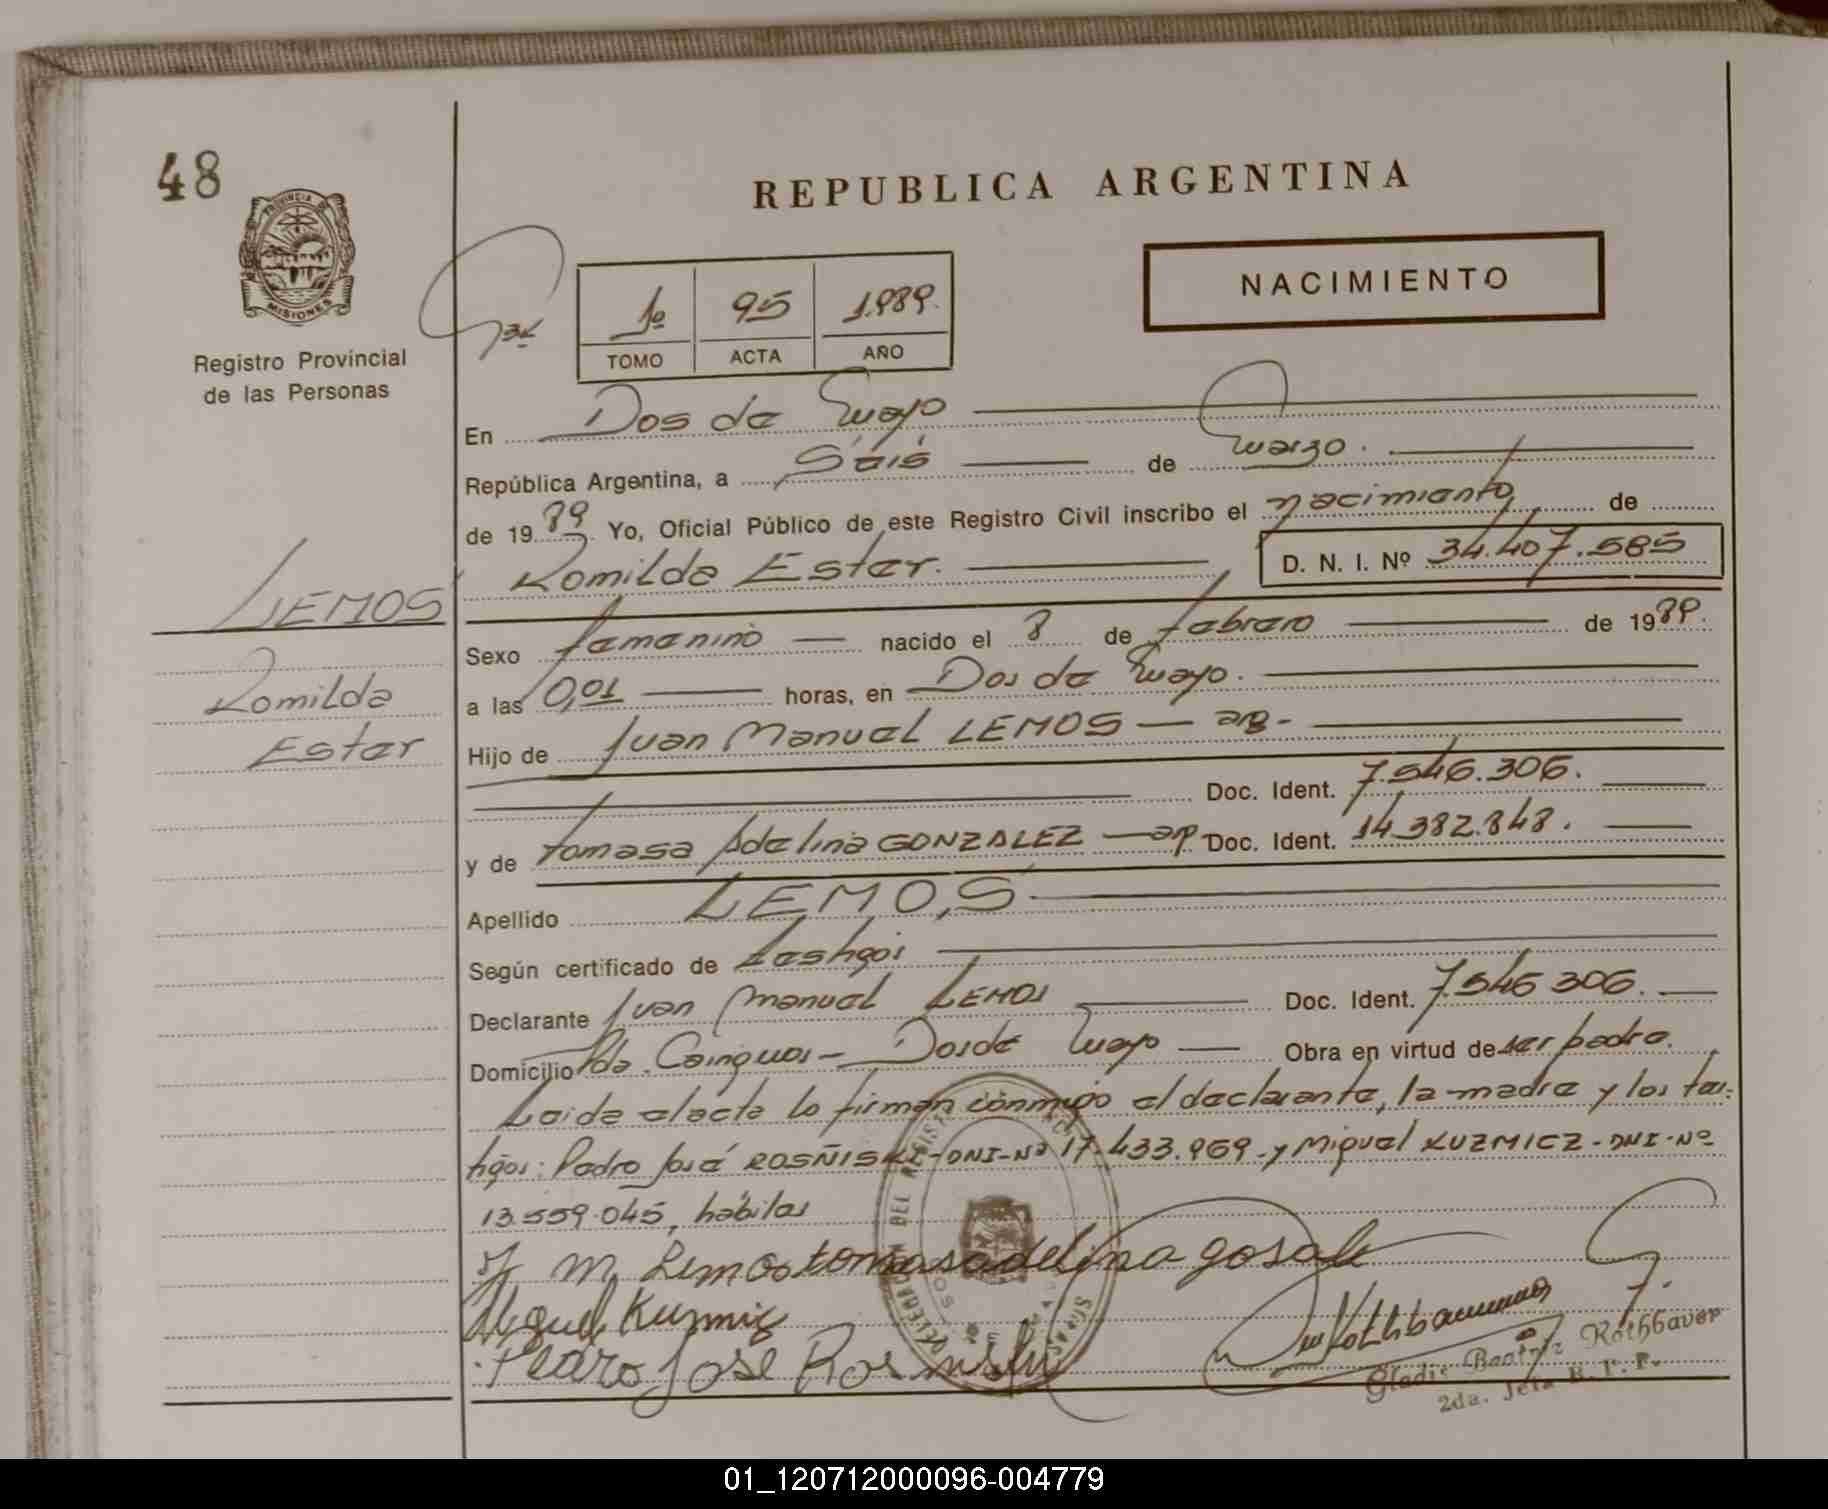 48
REPUBLICA ARGENTINA
PROVINCIA DE
MISIONES
Registro Provincial
de las Personas
1º 95 1.989.
TOMO ACTA AÑO
NACIMIENTO
En Dos de Mayo
República Argentina, a Séis de Marzo.
de 1989. Yo, Oficial Público de este Registro Civil inscribo el nacimiento de
Romilda Ester. D. N. I. Nº 34.407.585
LEMOS
Romilda
Ester
Sexo femenino nacido el 8 de febrero de 1989.
a las 0,01 horas, en Dos de Mayo.
Hijo de Juan Manuel LEMOS — arg-
Doc. Ident. 7.546.306.
y de Tomasa Adelina GONZALEZ — arg Doc. Ident. 14.382.848.
Apellido LEMOS
Según certificado de testigos
Declarante Juan Manuel LEMOS Doc. Ident. 7.546.306.
Domicilio Pda. Cainguas - Dos de Mayo Obra en virtud de ser padre.
Leida el acta lo firman conmigo el declarante, la madre y los tes-
tigos: Pedro José ROSÑISKI-DNI-Nº 17.433.969-y Miguel KUZMICZ-DNI-Nº
13.559.045, hábiles
J M Lemos tomasadelina gosale
Miguel Kuzmicz
Pedro Jose Rosniski
Gladis Beatriz Rothbaver
2da. Jefa R. P. P.
01_120712000096-004779